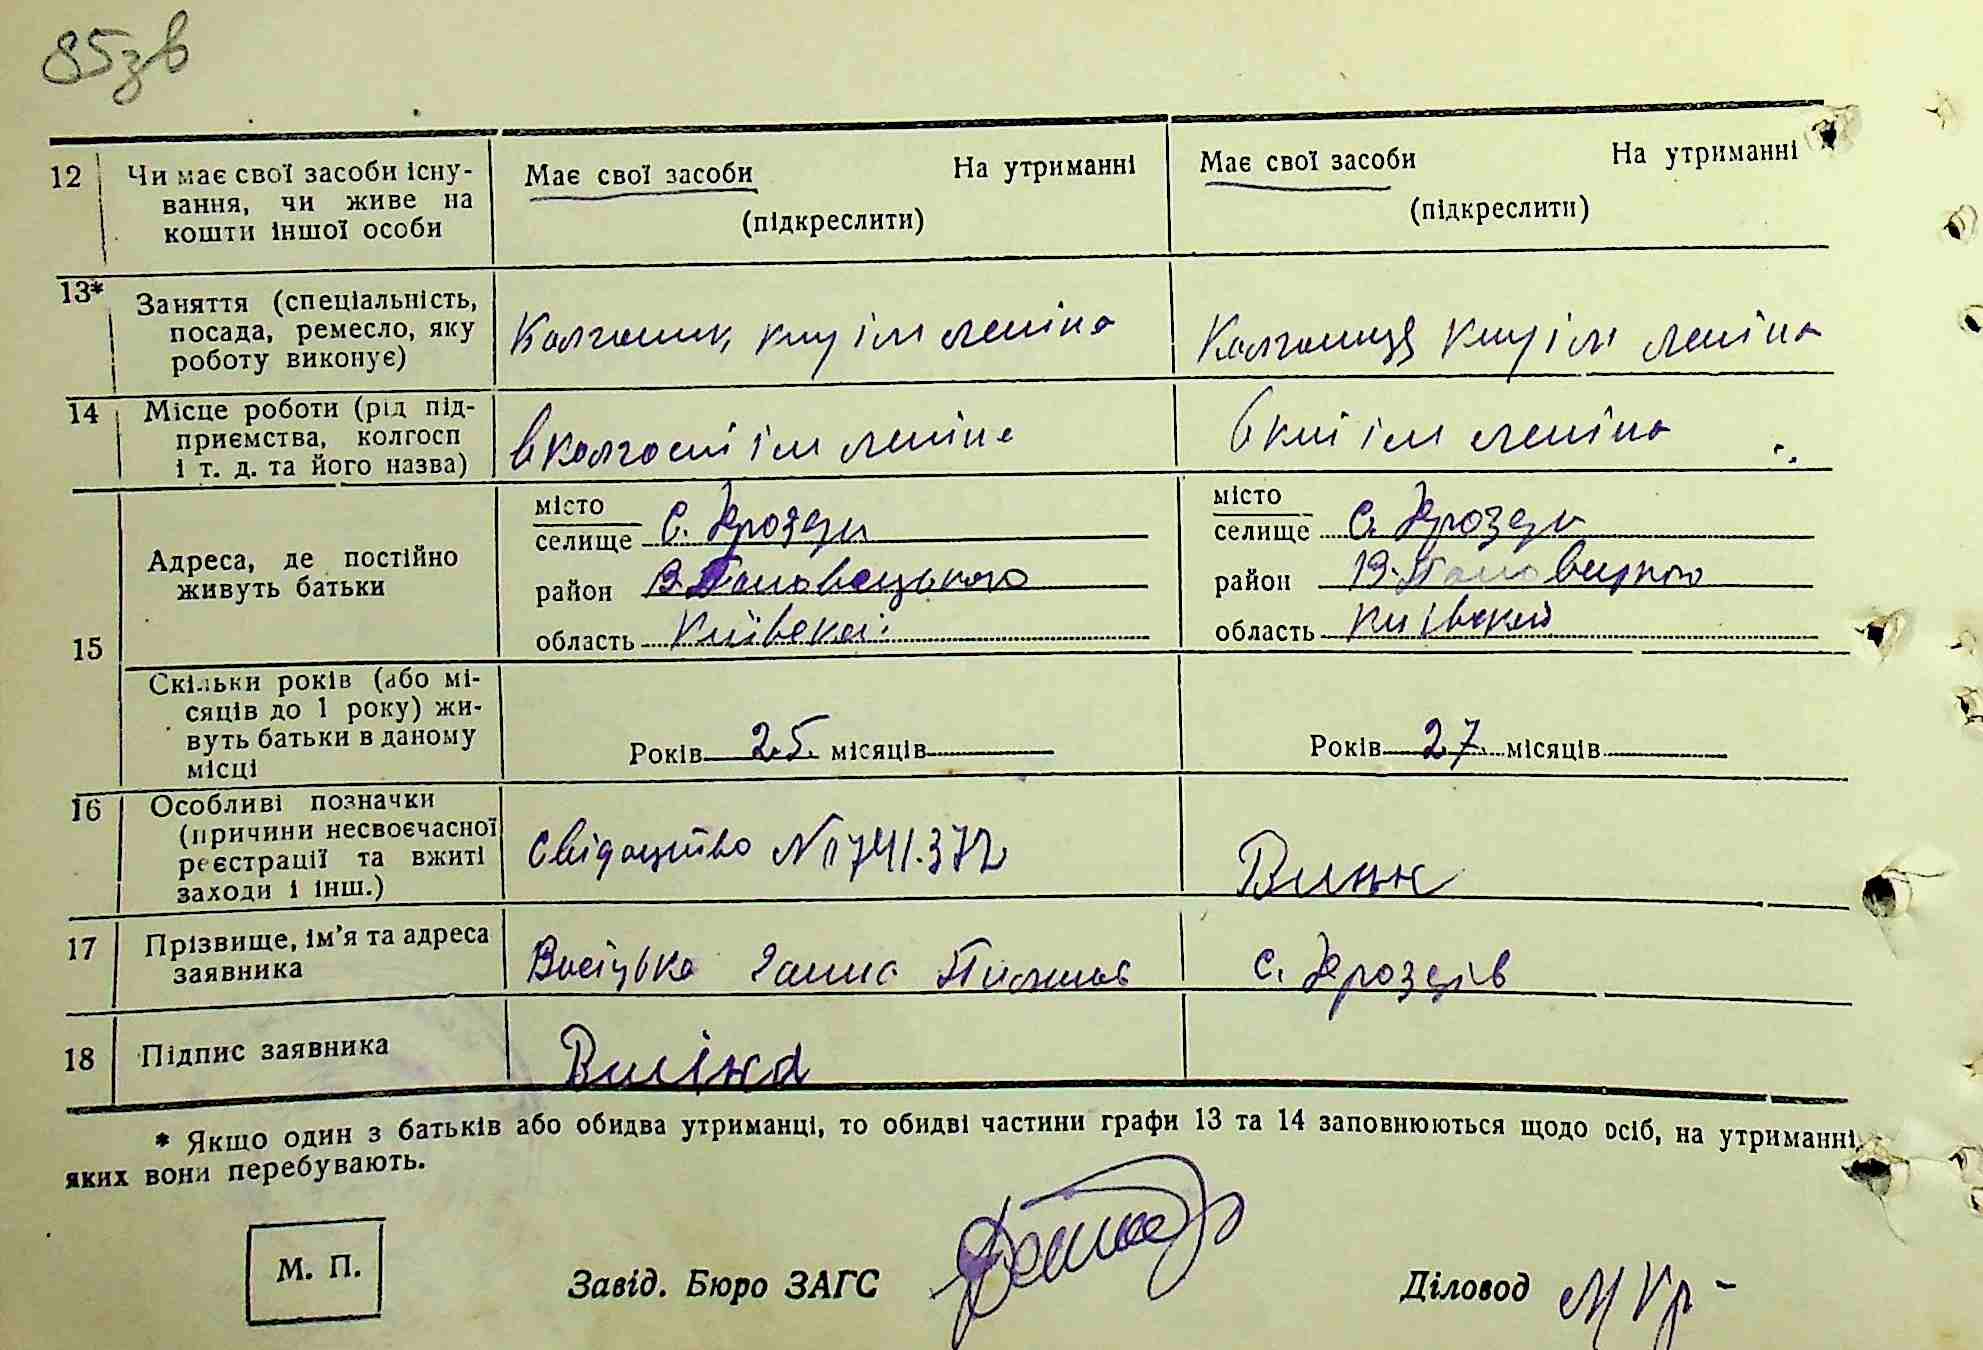 85зв
12 Чи має свої засоби існу- Має свої засоби На утриманні Має свої засоби На утриманні
вання, чи живе на (підкреслити) (підкреслити)
кошти іншої особи
13* Заняття (спеціальність,
посада, ремесло, яку Колгосник, кпу ім леніна Колгосниця кпу ім леніна
роботу виконує)
14 Місце роботи (рід під-
приємства, колгосп в колгоспі ім леніна в кпі ім леніна
і т. д. та його назва)
місто місто
селище с. Дрозди селище с. Дрозди
15 Адреса, де постійно
живуть батьки район В.Половецького район В.Половецького
область Київської область Київської
Скільки років (або мі-
сяців до 1 року) жи-
вуть батьки в даному Років 25 місяців Років 27 місяців
місці
16 Особливі позначки
(причини несвоєчасної
реєстрації та вжиті свідоцтво №
заходи і інш.)
17 Прізвище, ім'я та адреса
заявника Ганна с. Дроздів
18 Підпис заявника
* Якщо один з батьків або обидва утриманці, то обидві частини графи 13 та 14 заповнюються щодо осіб, на утриманні
яких вони перебувають.
М. П. Завід. Бюро ЗАГС Діловод